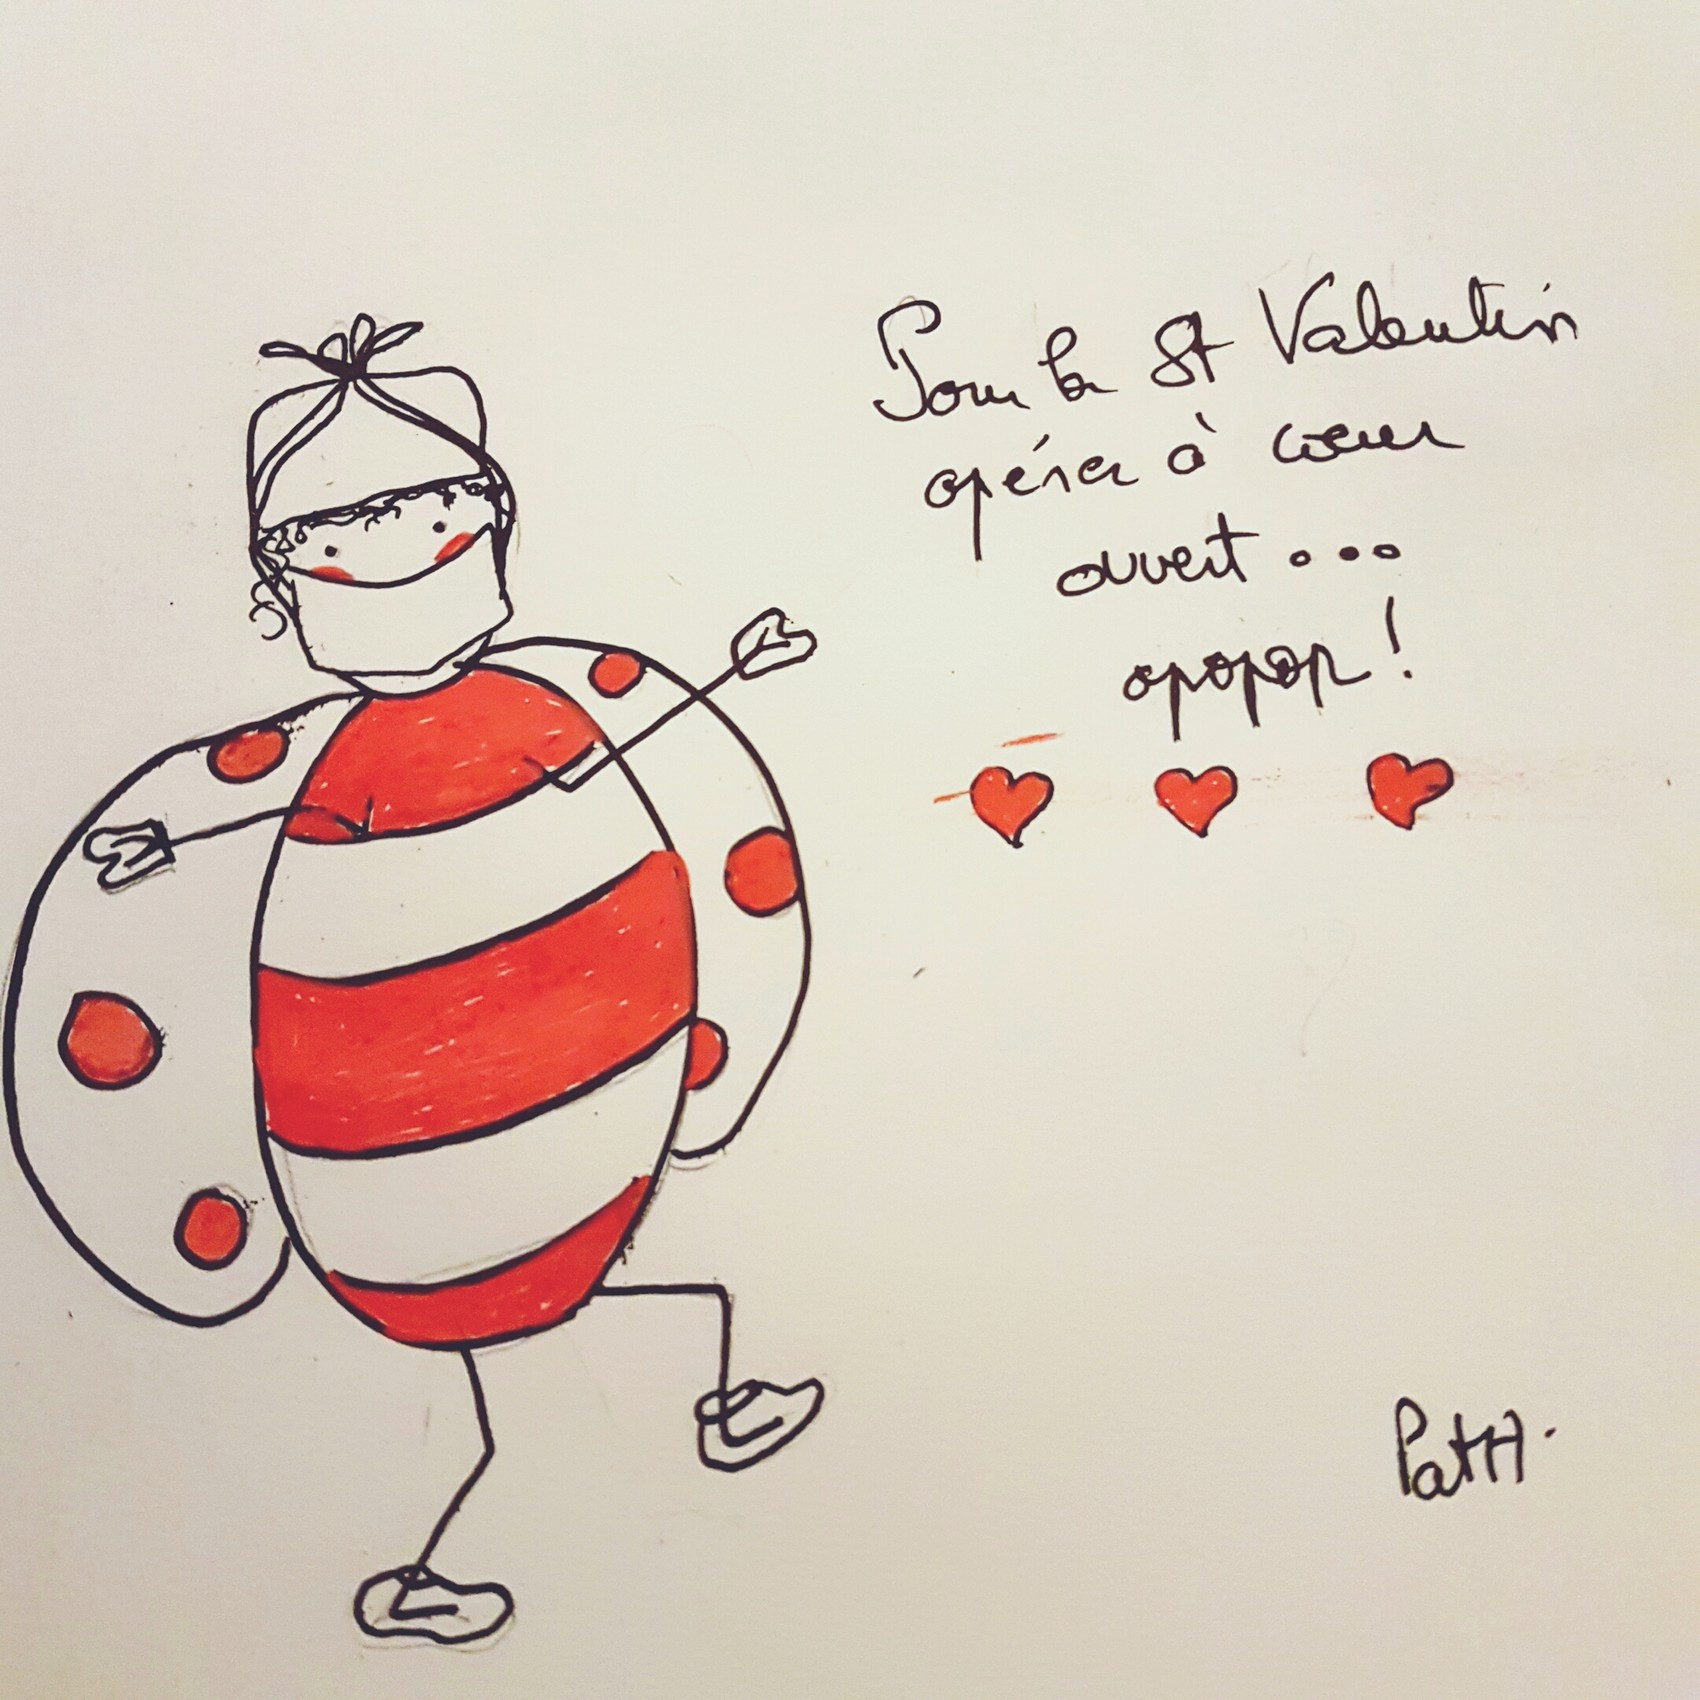 Pour la St Valentin
opérer à cœur
ouvert ...
opopop !
PattH.